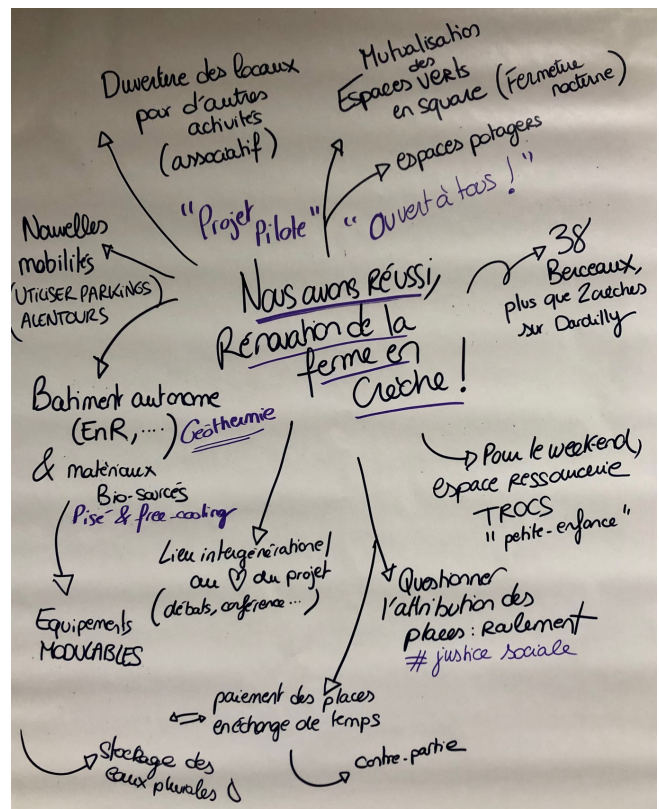 Ouverture des locaux
pour d'autres
activités
(associatif)
Mutualisation
des
Espaces VERTS
en square (Fermeture
nocturne)
espaces potagers
"Projet
Pilote"
"Ouvert à tous !"
Nouvelles
mobilités
(UTILISER PARKINGS)
ALENTOURS
Nous avons RÉUSSI,
Rénovation de la
ferme en
Crèche !
38
Berceaux,
plus que 2 crèches
sur Dardilly
Batiment autonome
(EnR, ....) Géothermie
& matériaux
Bio-sourcés
Pisé & free-cooling
Equipements
MODULABLES
Lieu intergénérationel
au ♡ du projet
(débats, conférence...)
Pour le week-end,
espace RESSOURCERIE
TROCS
"petite-enfance"
Questionner
l'attribution des
places : Roulement
# justice sociale
paiement des places
⇔ en échange de temps
contre-partie
Stockage des
eaux pluviales